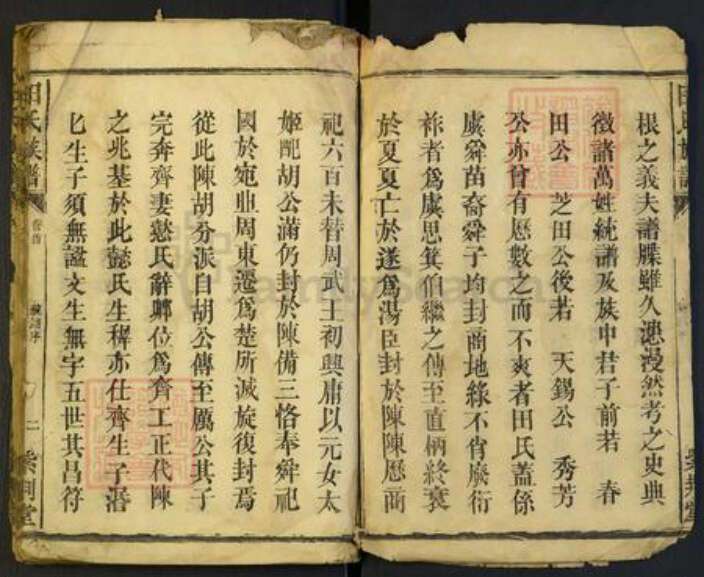 根之義夫譜牒雖久漶漫然考之史典
徵諸萬姓統譜及族中君子前若 春
田公 芝田公後若 天錫公 秀芳
公亦曾有歷數之而不爽者田氏蓋係
虞舜苗裔舜子均封商地緣不肖廢衍
祚者爲虞思箕伯繼之傳至直柄終衰
於夏夏亡於遂爲湯臣封於陳陳歷商
祀六百未替周武王初興庸以元女太
姬配胡公滿仍封於陳備三恪奉舜祀
國於宛丘周東遷爲楚所滅旋復封焉
從此陳胡分派自胡公傳至厲公其子
完奔齊妻懿氏辭卿位爲齊工正代陳
之兆基於此懿氏生穉亦仕齊生子湣
匕生子須無諡文生無宇五世其昌符
田氏族譜
卷首
二
紫荆堂